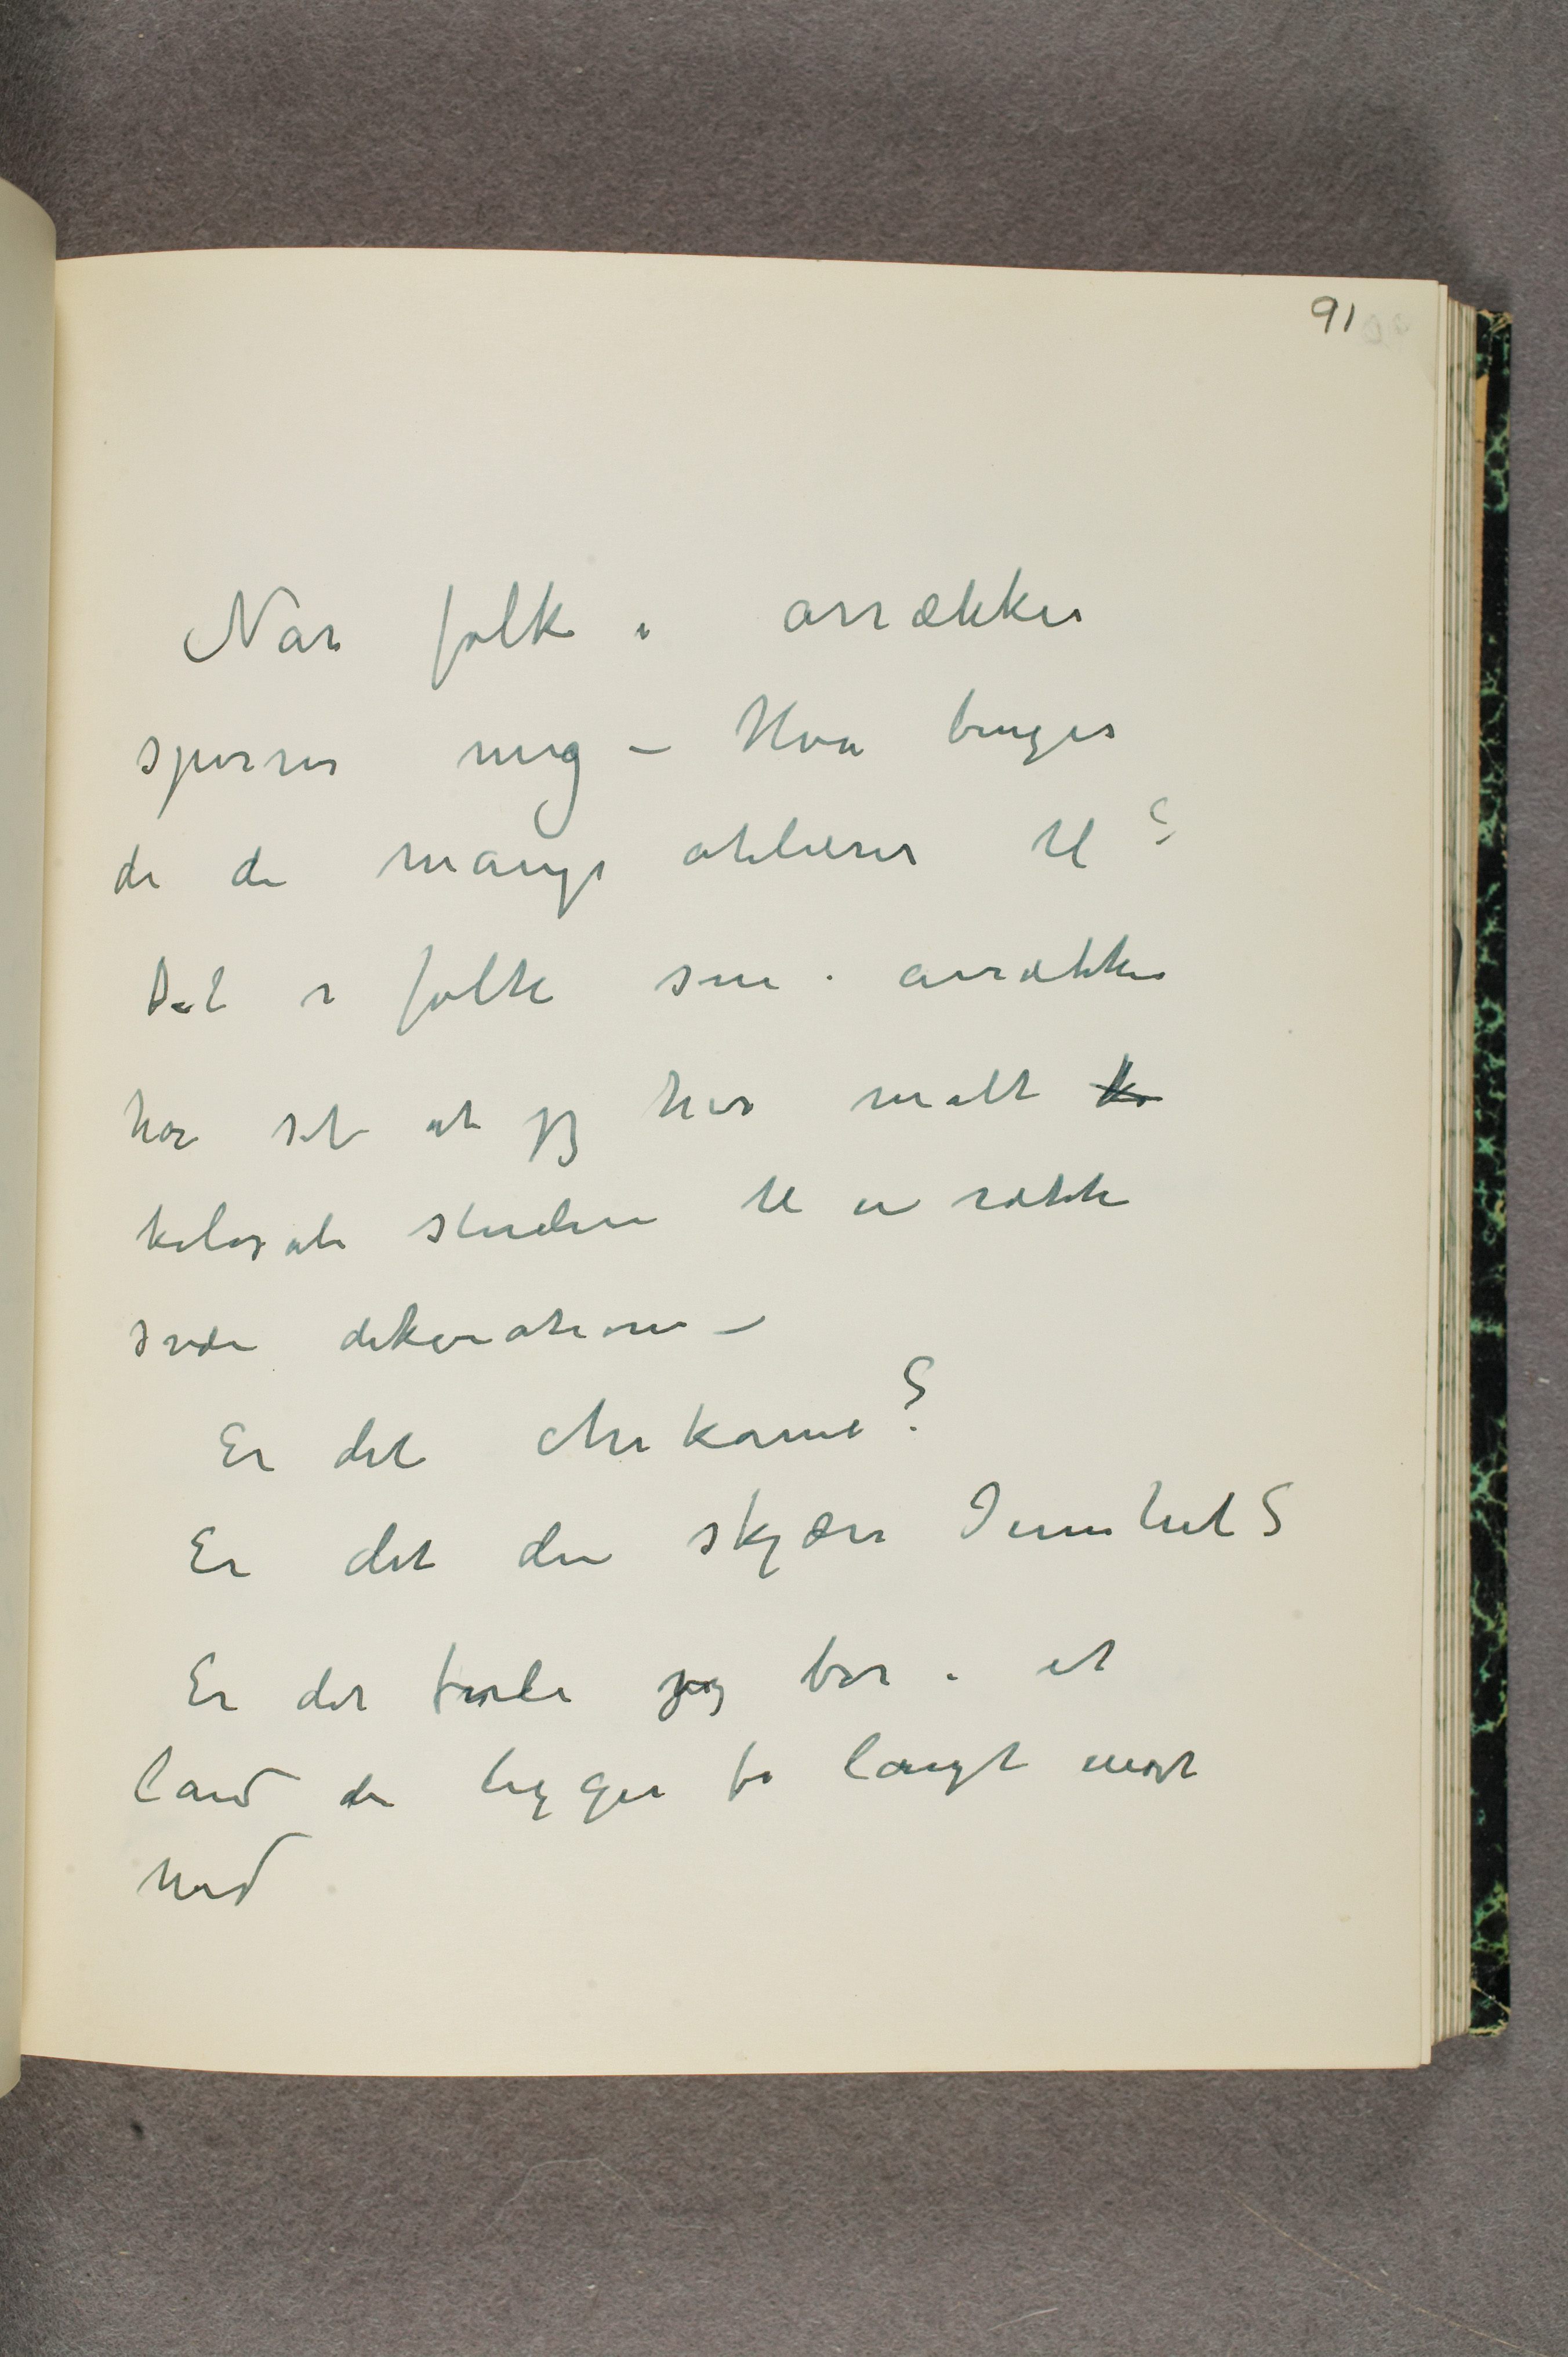 91
Når folk i årrækker
spørrer mig – Hva bruges
de de mange atelierer til?
Det er folk som i årrækker
har set at jeg har malt
kolosale studier til en række
svære dekorationer –
Er det chikane?
Er det den skjære Dumhet?
Er det fordi jeg bor i et
land der ligger for langt mot
nord